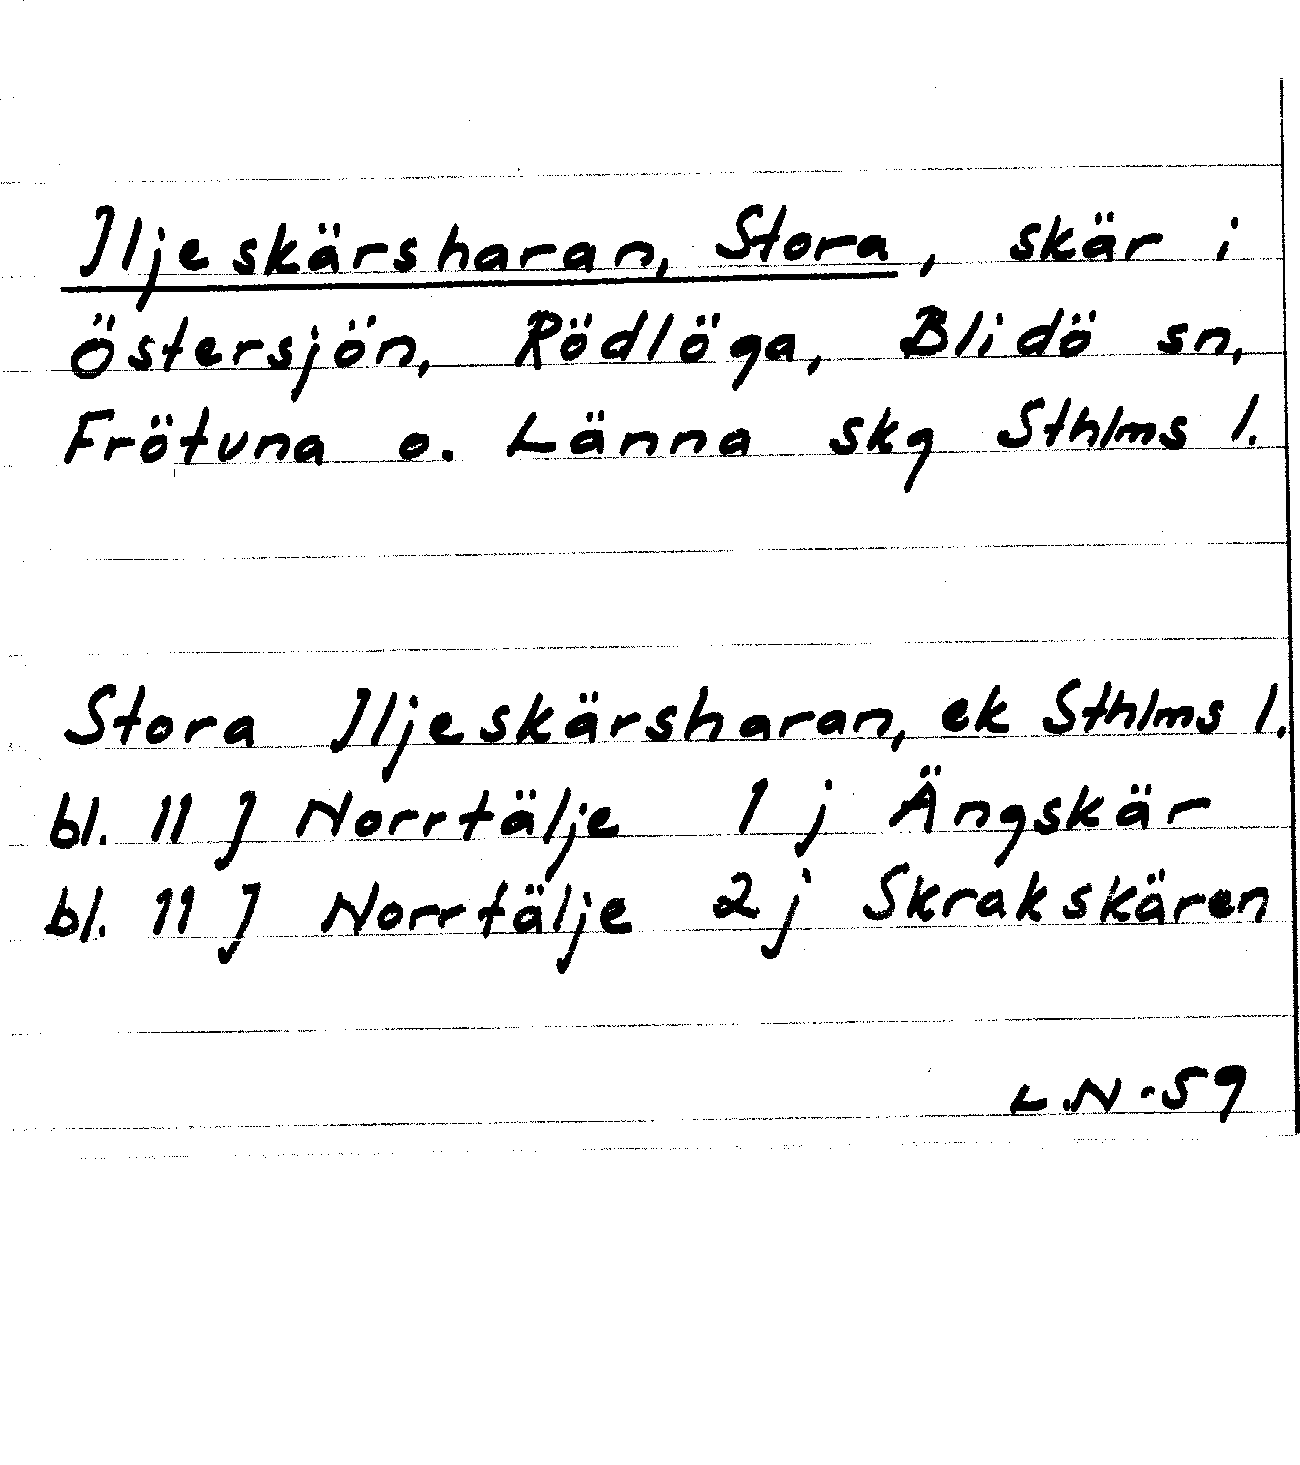 Iljeskärsharan, Stora, skär i
Östersjön, Rödlöga, Blidö sn,
Frötuna o. Länna skg Sthlms l.
Stora Iljeskärsharan, ek Sthlms l.
bl. 11 J Norrtälje 1 j Ängskär
bl. 11 J Norrtälje 2 j Skrakskären
L.N-59